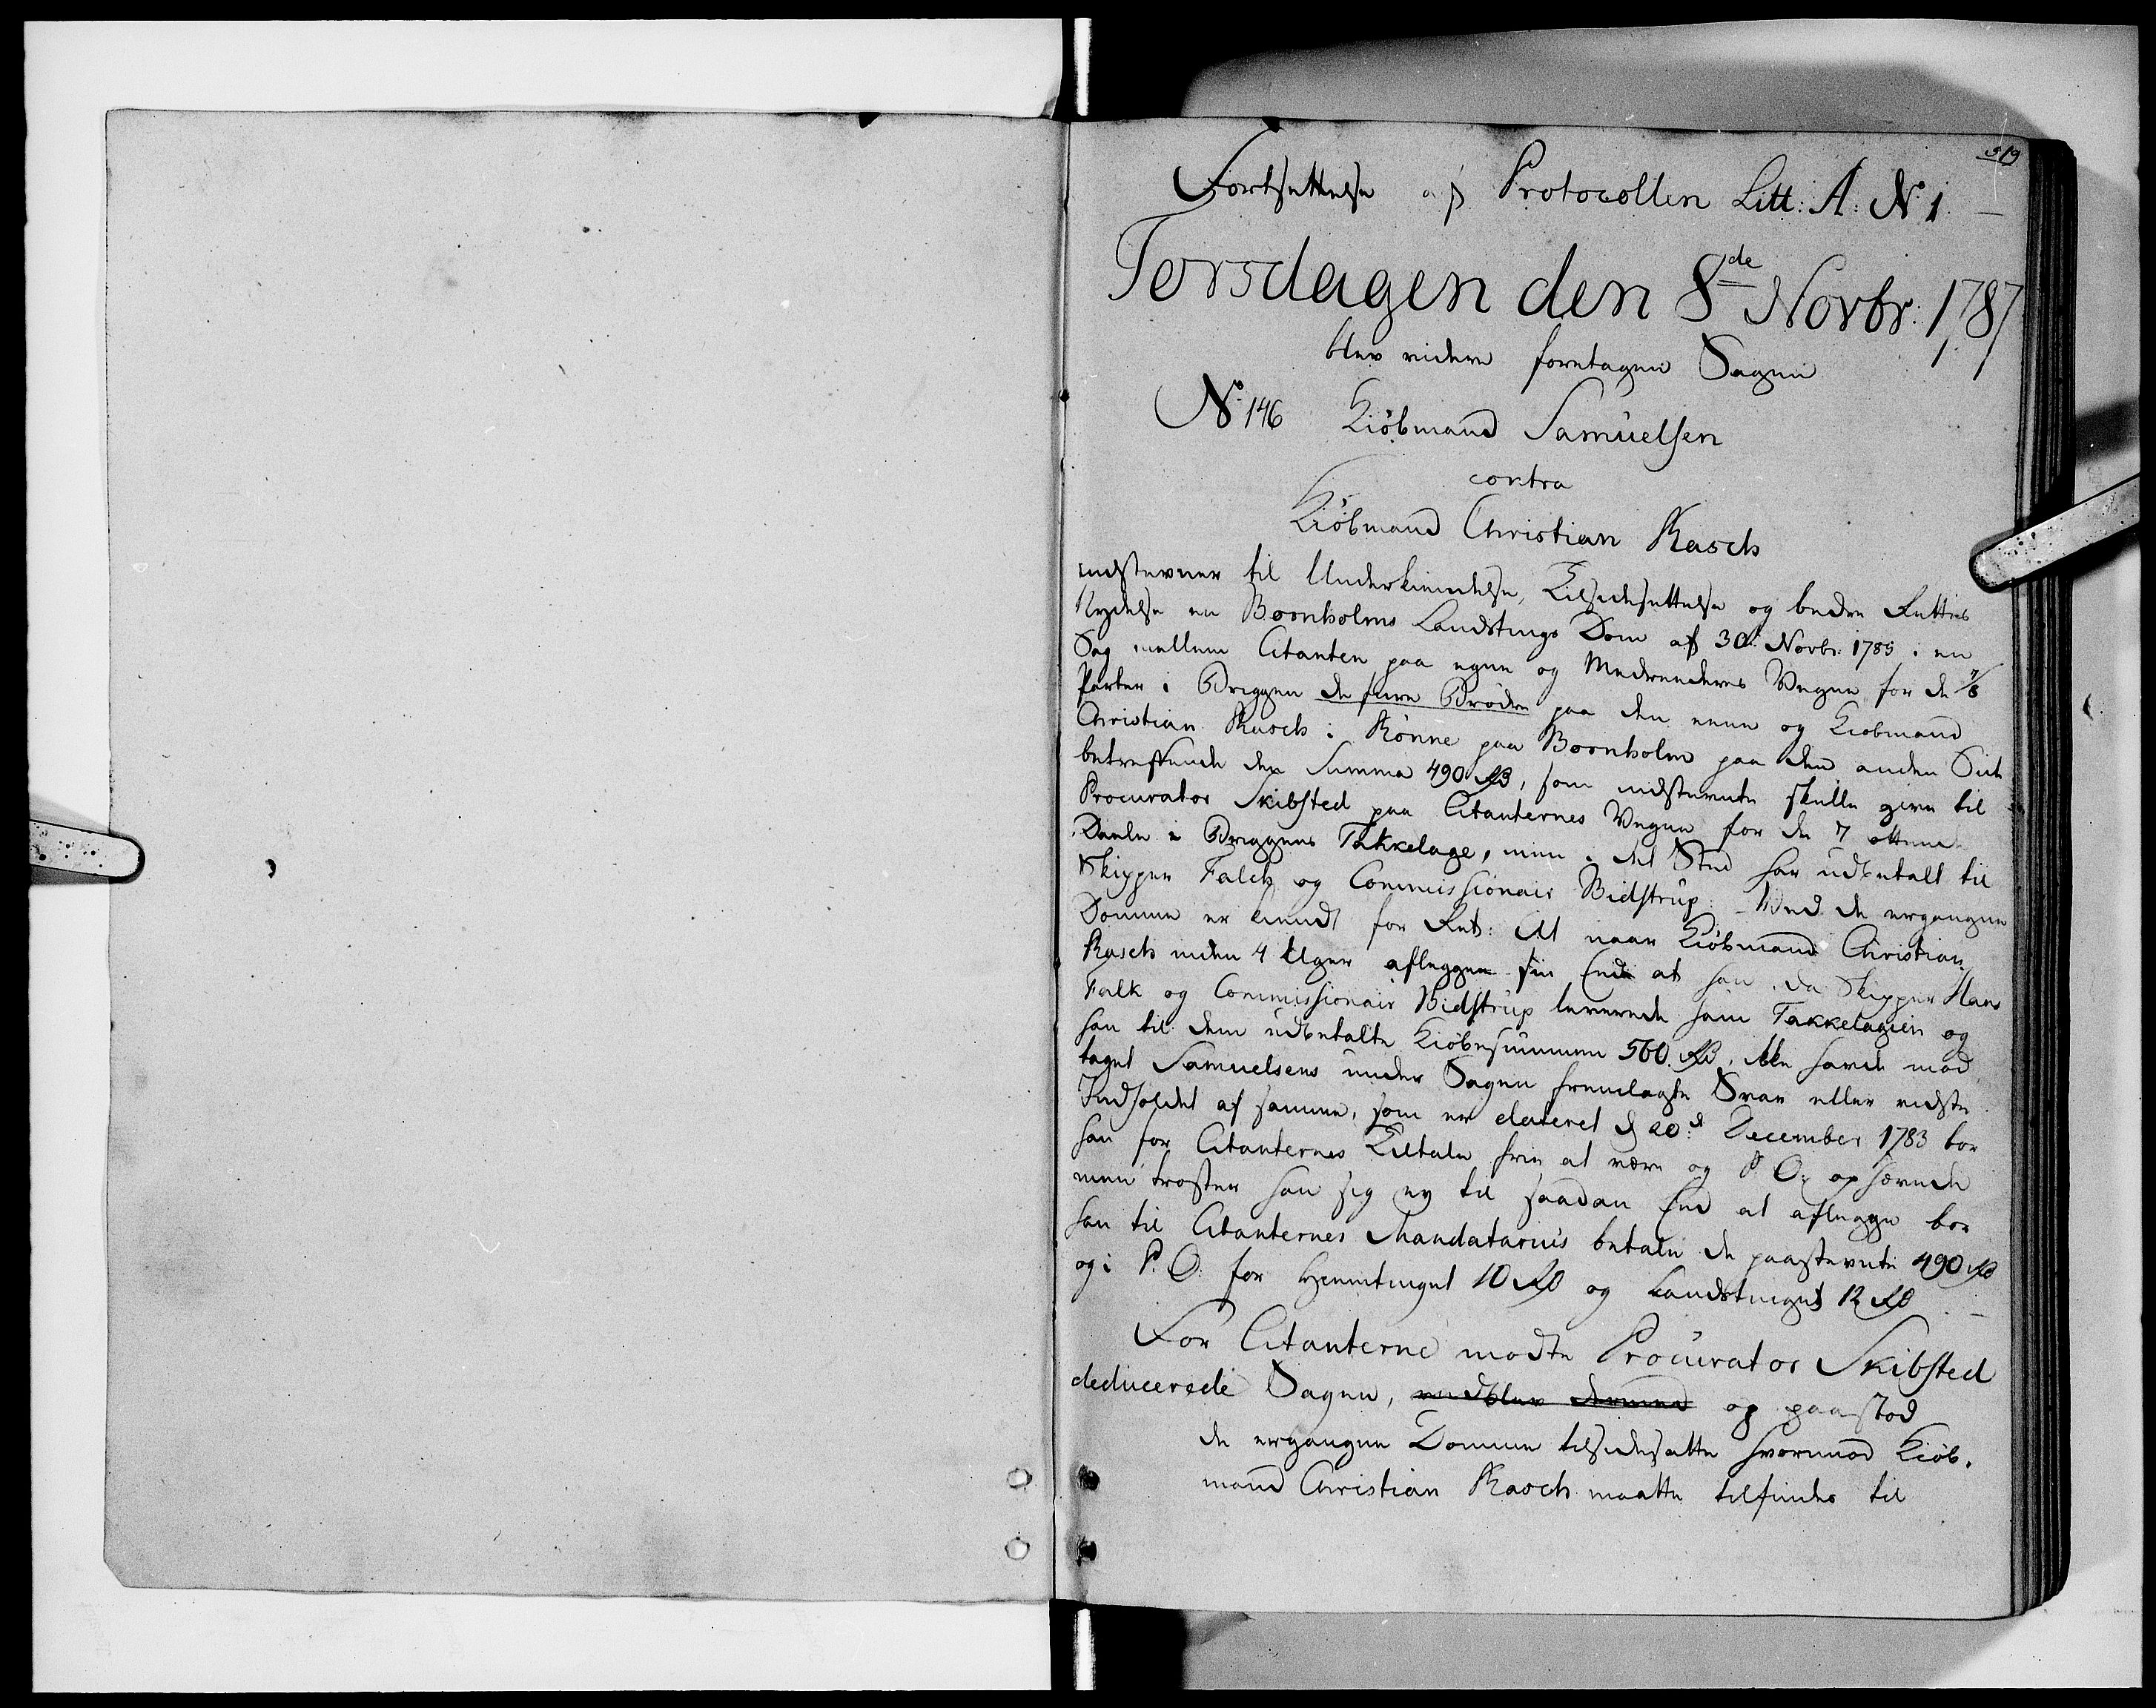 519
Fortsættelse af Protocollen Litt: A: No 1.
Torsdagen den 8de Novbr. 1787
blev videre foretagen Sagen
No 146 Kiöbmand Samuelsen
contra
Kiöbmand Christian Rasch
indstevner til Underkiendelse, Tilsidesættelse og bedre Rettes
Nydelse en Bornholms Landstings Dom af 30d. Novbr. 1785 i en
Sag mellem Citanten paa egne og Medreederes Vegne for de 7/8
Parter i Briggen de fire Brødre paa den eene og Kiobmand
Christian Rasch i Rönne paa Bornholm paa den anden Side
betreffende den Summa 490 Rd, som indstevnte skulle give til
Procurator Skibsted paa Citanternes Vegne for de 7 ottende
Deele i Briggens Takkelage, men i det Sted har udbetalt til
Skipper Falck og Commissionair Bidstrup. Ved de ergangne
Domme er kiendt for Ret: At naar Kiöbmand Christian
Rasch inden 4 Uger aflegger sin Eed at han, da Skipper Hans
Falk og Commissionair Bidstrup leverede ham Takkelagien og
han til dem udbetalte Kiöbesummen 560 Rd, ikke havde mod
taget Samuelsens under Sagen fremlagte Svar eller vidste
Indholdet af samme, som er dateret d 20d December 1783 bor
han for Citanternes Tiltale frie at være og P. O. ophævede
men trøster han sig ey til saadan Eed at aflegge bor
han til Citanternes Mandatarius betale de paastevnte 490 Rd
og i P. O. for Hiemtinget 10 Rd og Landstinget 12 Rd
For Citanterne modte Procurator Skibsted
deducerede Sagen, og paastod
de ergangne Domme tilsidesatte hvorimod Kiöb-
mand Christian Rasch maatte tilfindes til